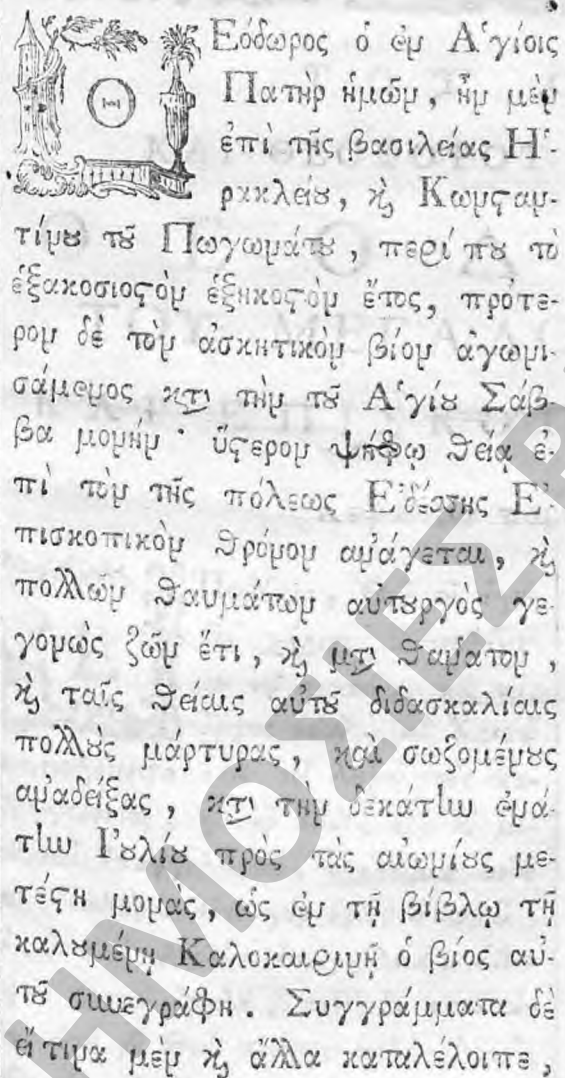 Θεόδωρος ὁ ἐν Ἁγίοις
Πατὴρ ἡμῶν, ἦν μὲν
ἐπὶ τῆς βασιλείας Ἡ-
ρακλείȣ, ϗ Κωνϛαν-
τίνȣ τȣ͂ Πωγωνάτȣ, περίπȣ τὸ
ἑξακοσιοϛὸν ἑξηκοϛὸν ἔτος, πρότε-
ρον δὲ τὸν ἀσκητικὸν βίον ἀγωνι-
σάμενος κτ̀ τὴν τȣ͂ Ἁγίȣ Σάβ-
βα μονήν· ὕϛερον ψήφῳ θείᾳ ἐ-
πὶ τὸν τῆς πόλεως Ἐδέσσης Ἐ-
πισκοπικὸν θρόνον ἀνάγεται, ϗ
πολλῶν θαυμάτων αὐτȣργὸς γε-
γονὼς ζῶν ἔτι, ϗ μτ̀ θάνατον,
ϗ ταῖς θείαις αὐτȣ͂ διδασκαλίαις
πολλȣ̀ς μάρτυρας, καὶ σωζομένȣς
ἀναδείξας, κτ̀ τὴν δεκάτην ἐνά-
την Ἰȣλίȣ πρὸς τὰς αἰωνίȣς με-
τέϛη μονὰς, ὡς ἐν τῇ βίβλῳ τῇ
καλȣμένῃ Καλοκαιρινῇ ὁ βίος αὐ-
τȣ͂ συνεγράφη. Συγγράμματα δὲ
εἴ τινα μὲν ϗ ἄλλα καταλέλοιπε,